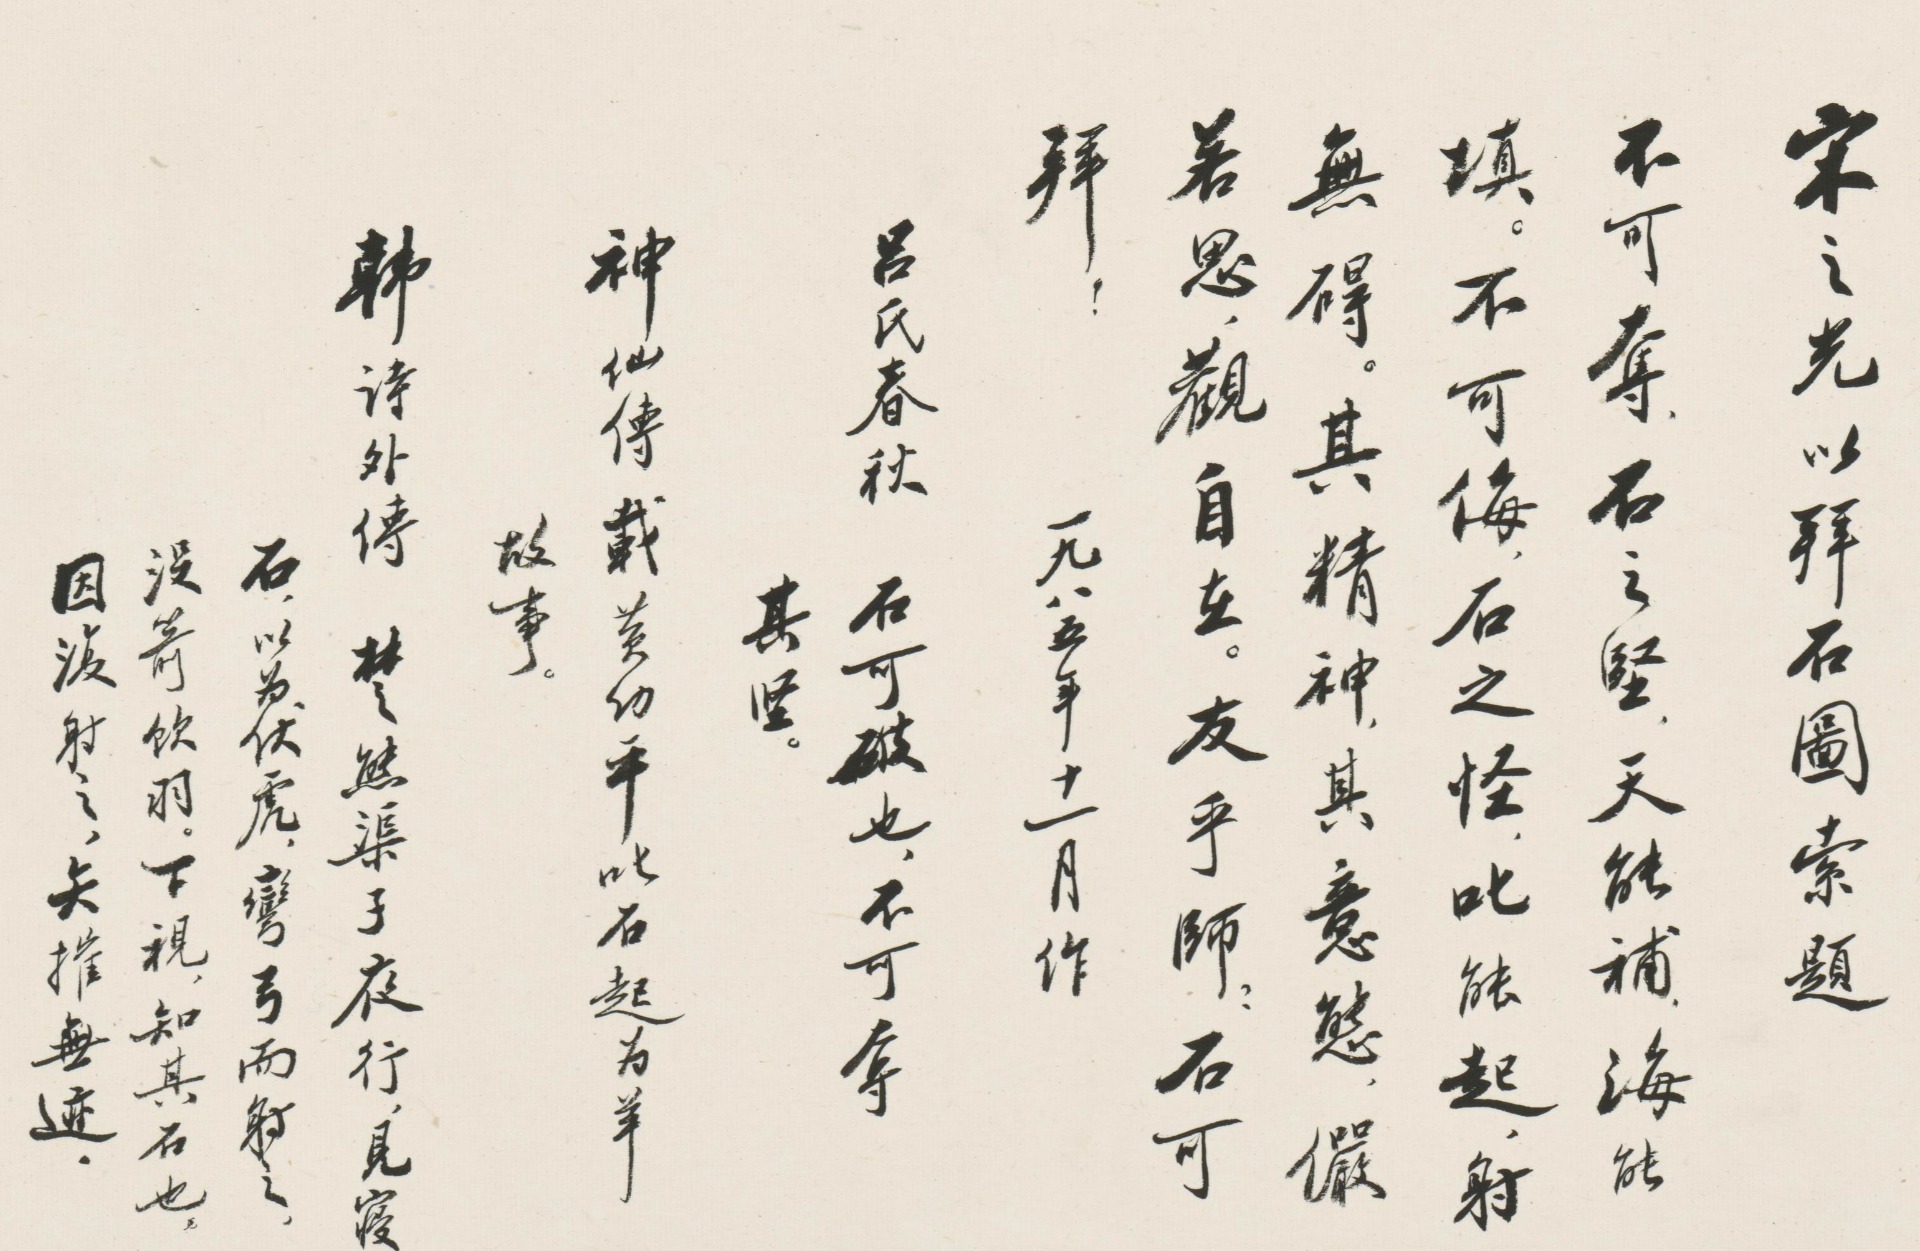 宋之光以拜石圖索題
不可奪，石之堅，天能補，海能
填。不可侮，石之怪，叱能起，射
無碍。其精神，其意態，儼
若思，觀自在。友乎師？石可
拜！
一九八五年十一月作
吕氏春秋 石可破也，不可夺
其坚。
神仙傳載黄初平叱石起为羊
故事。
韩诗外傳 楚熊渠子夜行，見寝
石，以为伏虎，彎弓而射之，
没箭飲羽。下視，知其石也。
因復射之，矢摧無迹。